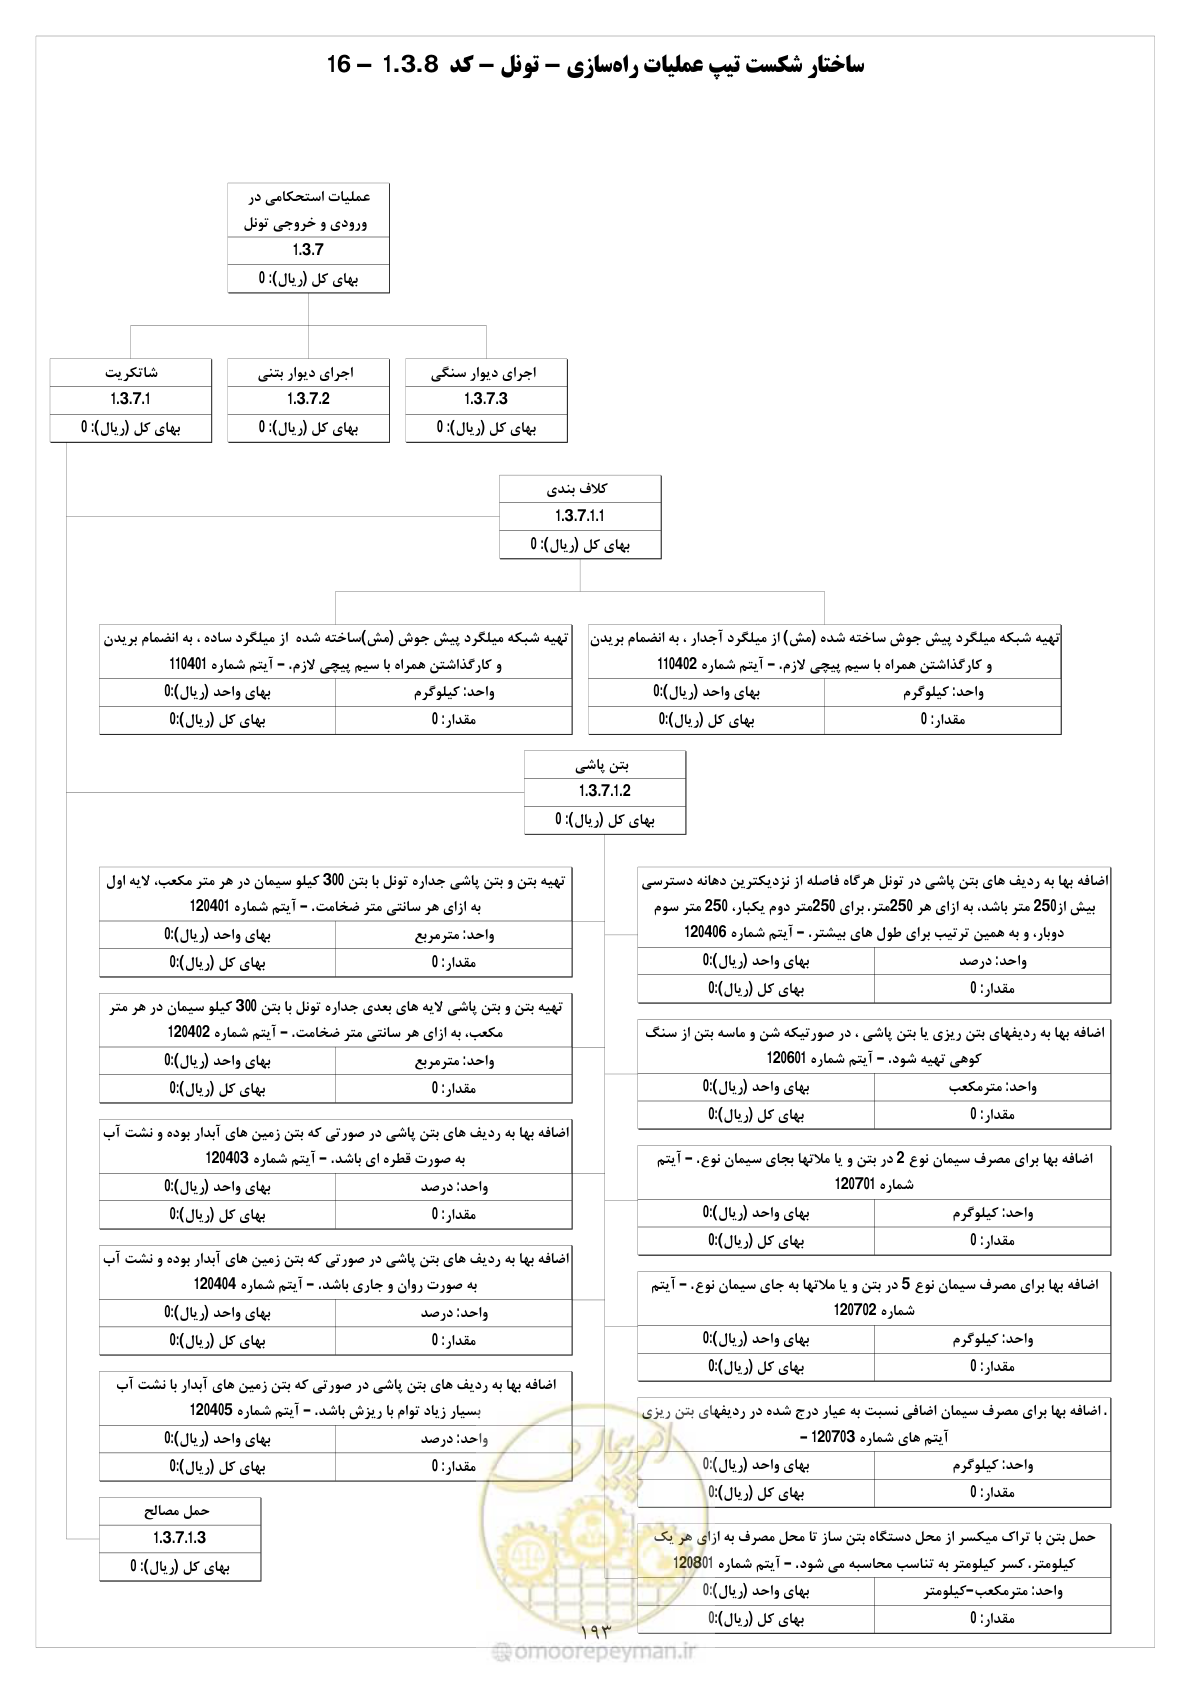 ساختار شکست تیپ عملیات راه‌سازی – تونل – کد 1.3.8 – 16
عملیات استحکامی در
ورودی و خروجی تونل
1.3.7
بهای کل (ریال): 0
اجرای دیوار سنگی
1.3.7.3
بهای کل (ریال): 0
اجرای دیوار بتنی
1.3.7.2
بهای کل (ریال): 0
شاتکریت
1.3.7.1
بهای کل (ریال): 0
کلاف بندی
1.3.7.1.1
بهای کل (ریال): 0
تهیه شبکه میلگرد پیش جوش ساخته شده (مش) از میلگرد آجدار ، به انضمام بریدن
و کارگذاشتن همراه با سیم پیچی لازم. – آیتم شماره 110402
واحد: کیلوگرم
بهای واحد (ریال):0
مقدار: 0
بهای کل (ریال):0
تهیه شبکه میلگرد پیش جوش (مش)ساخته شده از میلگرد ساده ، به انضمام بریدن
و کارگذاشتن همراه با سیم پیچی لازم. – آیتم شماره 110401
واحد: کیلوگرم
بهای واحد (ریال):0
مقدار: 0
بهای کل (ریال):0
بتن پاشی
1.3.7.1.2
بهای کل (ریال): 0
اضافه بها به ردیف های بتن پاشی در تونل هرگاه فاصله از نزدیکترین دهانه دسترسی
بیش از250 متر باشد، به ازای هر 250متر. برای 250متر دوم یکبار، 250 متر سوم
دوبار، و به همین ترتیب برای طول های بیشتر. – آیتم شماره 120406
واحد: درصد
بهای واحد (ریال):0
مقدار: 0
بهای کل (ریال):0
اضافه بها به ردیفهای بتن ریزی یا بتن پاشی ، در صورتیکه شن و ماسه بتن از سنگ
کوهی تهیه شود. – آیتم شماره 120601
واحد: مترمکعب
بهای واحد (ریال):0
مقدار: 0
بهای کل (ریال):0
اضافه بها برای مصرف سیمان نوع 2 در بتن و یا ملاتها بجای سیمان نوع. – آیتم
شماره 120701
واحد: کیلوگرم
بهای واحد (ریال):0
مقدار: 0
بهای کل (ریال):0
اضافه بها برای مصرف سیمان نوع 5 در بتن و یا ملاتها به جای سیمان نوع. – آیتم
شماره 120702
واحد: کیلوگرم
بهای واحد (ریال):0
مقدار: 0
بهای کل (ریال):0
. اضافه بها برای مصرف سیمان اضافی نسبت به عیار درج شده در ردیفهای بتن ریزی
آیتم های شماره 120703 –
واحد: کیلوگرم
بهای واحد (ریال):0
مقدار: 0
بهای کل (ریال):0
حمل بتن با تراک میکسر از محل دستگاه بتن ساز تا محل مصرف به ازای هر یک
کیلومتر. کسر کیلومتر به تناسب محاسبه می شود. – آیتم شماره 120801
واحد: مترمکعب–کیلومتر
بهای واحد (ریال):0
مقدار: 0
بهای کل (ریال):0
تهیه بتن و بتن پاشی جداره تونل با بتن 300 کیلو سیمان در هر متر مکعب، لایه اول
به ازای هر سانتی متر ضخامت. – آیتم شماره 120401
واحد: مترمربع
بهای واحد (ریال):0
مقدار: 0
بهای کل (ریال):0
تهیه بتن و بتن پاشی لایه های بعدی جداره تونل با بتن 300 کیلو سیمان در هر متر
مکعب، به ازای هر سانتی متر ضخامت. – آیتم شماره 120402
واحد: مترمربع
بهای واحد (ریال):0
مقدار: 0
بهای کل (ریال):0
اضافه بها به ردیف های بتن پاشی در صورتی که بتن زمین های آبدار بوده و نشت آب
به صورت قطره ای باشد. – آیتم شماره 120403
واحد: درصد
بهای واحد (ریال):0
مقدار: 0
بهای کل (ریال):0
اضافه بها به ردیف های بتن پاشی در صورتی که بتن زمین های آبدار بوده و نشت آب
به صورت روان و جاری باشد. – آیتم شماره 120404
واحد: درصد
بهای واحد (ریال):0
مقدار: 0
بهای کل (ریال):0
اضافه بها به ردیف های بتن پاشی در صورتی که بتن زمین های آبدار با نشت آب
بسیار زیاد توام با ریزش باشد. – آیتم شماره 120405
واحد: درصد
بهای واحد (ریال):0
مقدار: 0
بهای کل (ریال):0
حمل مصالح
1.3.7.1.3
بهای کل (ریال): 0
امور پیمان
۱۹۳
@omoorepeyman.ir